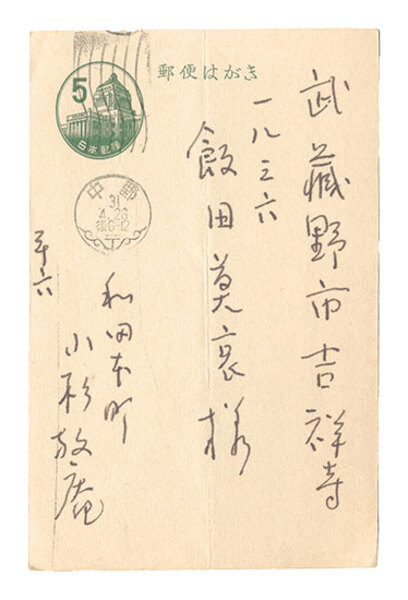 郵便はがき
5
日本郵便
中野
31
4.26
後6-12
武蔵野市吉祥寺
一八三六
飯田莫哀様
和田本町
小杉放庵